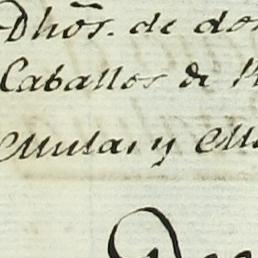 Dhōs. de do
Caballos de
Mulas y M